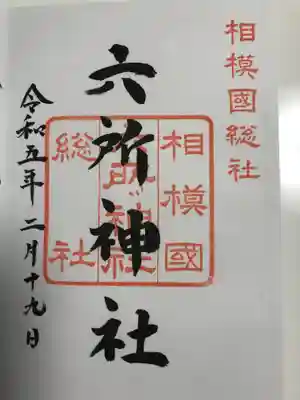 相模國総社
六所神社
相模國
総社
令和五年二月十九日